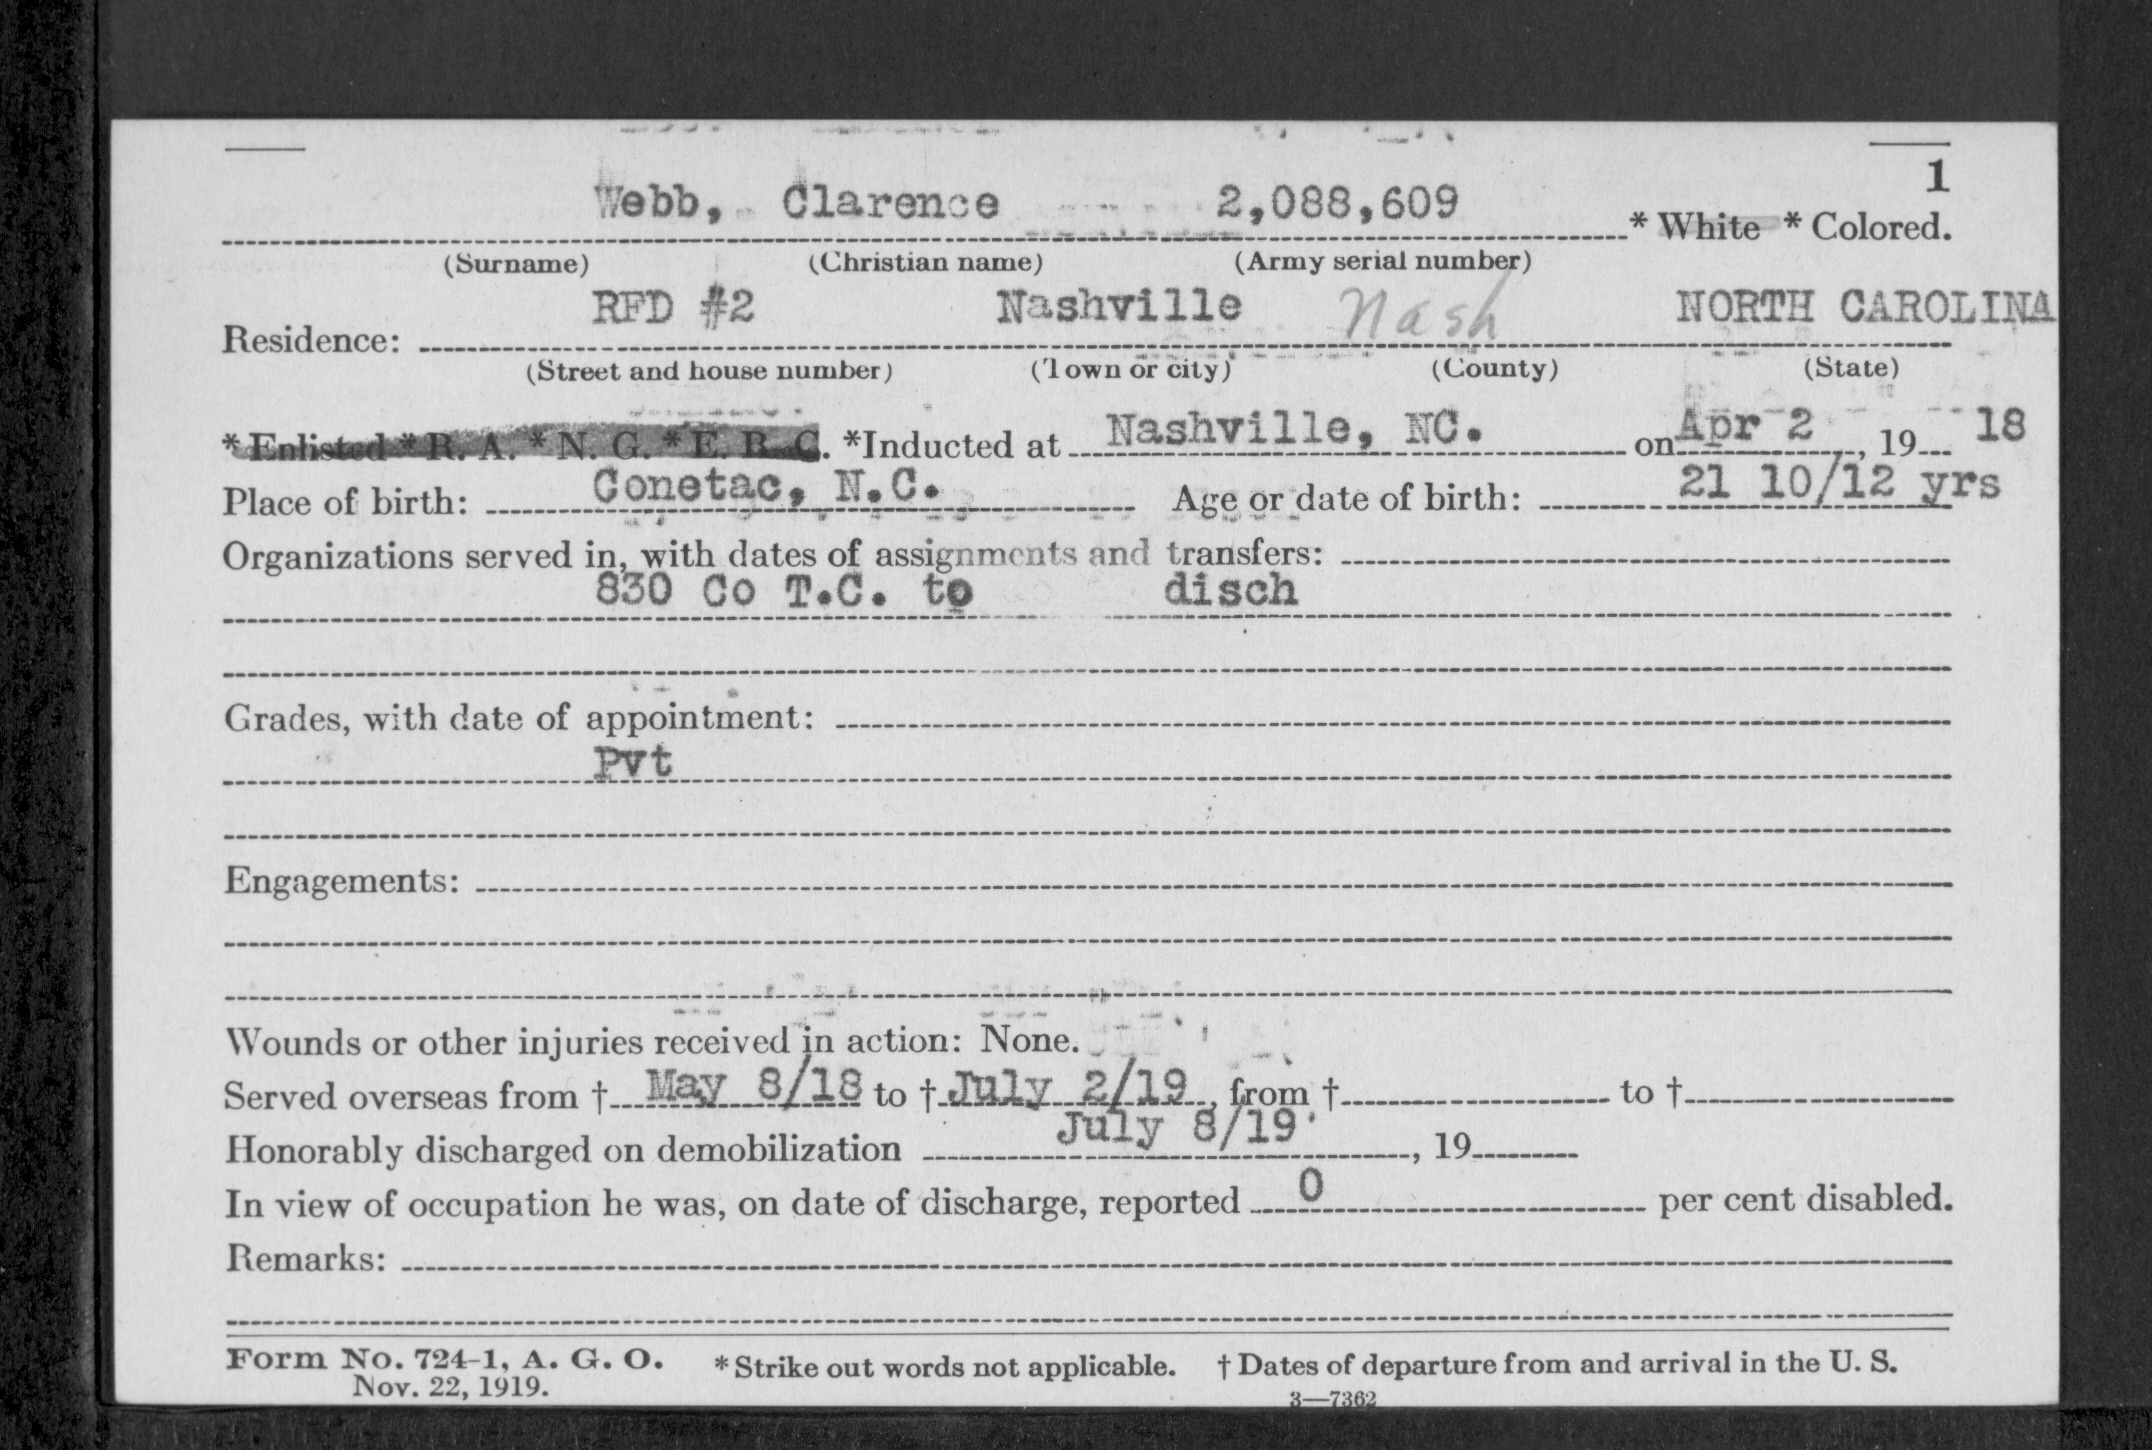 1
Webb, Clarence 2,088,609 * White * Colored.
(Surname) (Christian name) (Army serial number)
RFD #2 Nashville Nash NORTH CAROLINA
Residence:
(Street and house number) (Town or city) (County) (State)
* Enlisted * R. A. * N. G. * E. R. C. *Inducted at Nashville, NC. on Apr 2, 19 18
Place of birth: Conetac, N.C. Age or date of birth: 21 10/12 yrs
Organizations served in, with dates of assignments and transfers:
830 Co T.C. to disch
Grades, with date of appointment:
Pvt
Engagements:
Wounds or other injuries received in action: None.
Served overseas from † May 8/18 to † July 2/19, from † to †
Honorably discharged on demobilization July 8/19, 19
In view of occupation he was, on date of discharge, reported 0 per cent disabled.
Remarks:
Form No. 724-1, A. G. O. * Strike out words not applicable. † Dates of departure from and arrival in the U. S.
Nov. 22, 1919. 3—7362